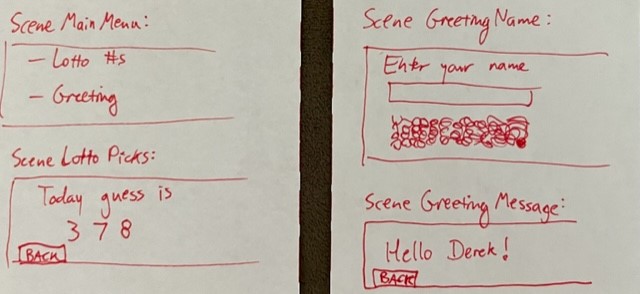 Scene Main Menu:
- Lotto #s
- Greeting
Scene Lotto Picks:
Today guess is
3 7 8
BACK
Scene Greeting Name:
Enter your name
Scene Greeting Message:
Hello Derek!
BACK